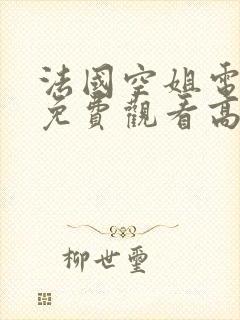 法國空姐電
免費觀看高
柳世璽